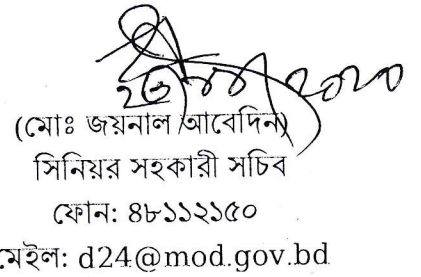 (মোঃ জয়নাল আবেদিন)
সিনিয়র সহকারী সচিব
ফোন: ৪৮১১২১৫০
মেইল: d24@mod.gov.bd